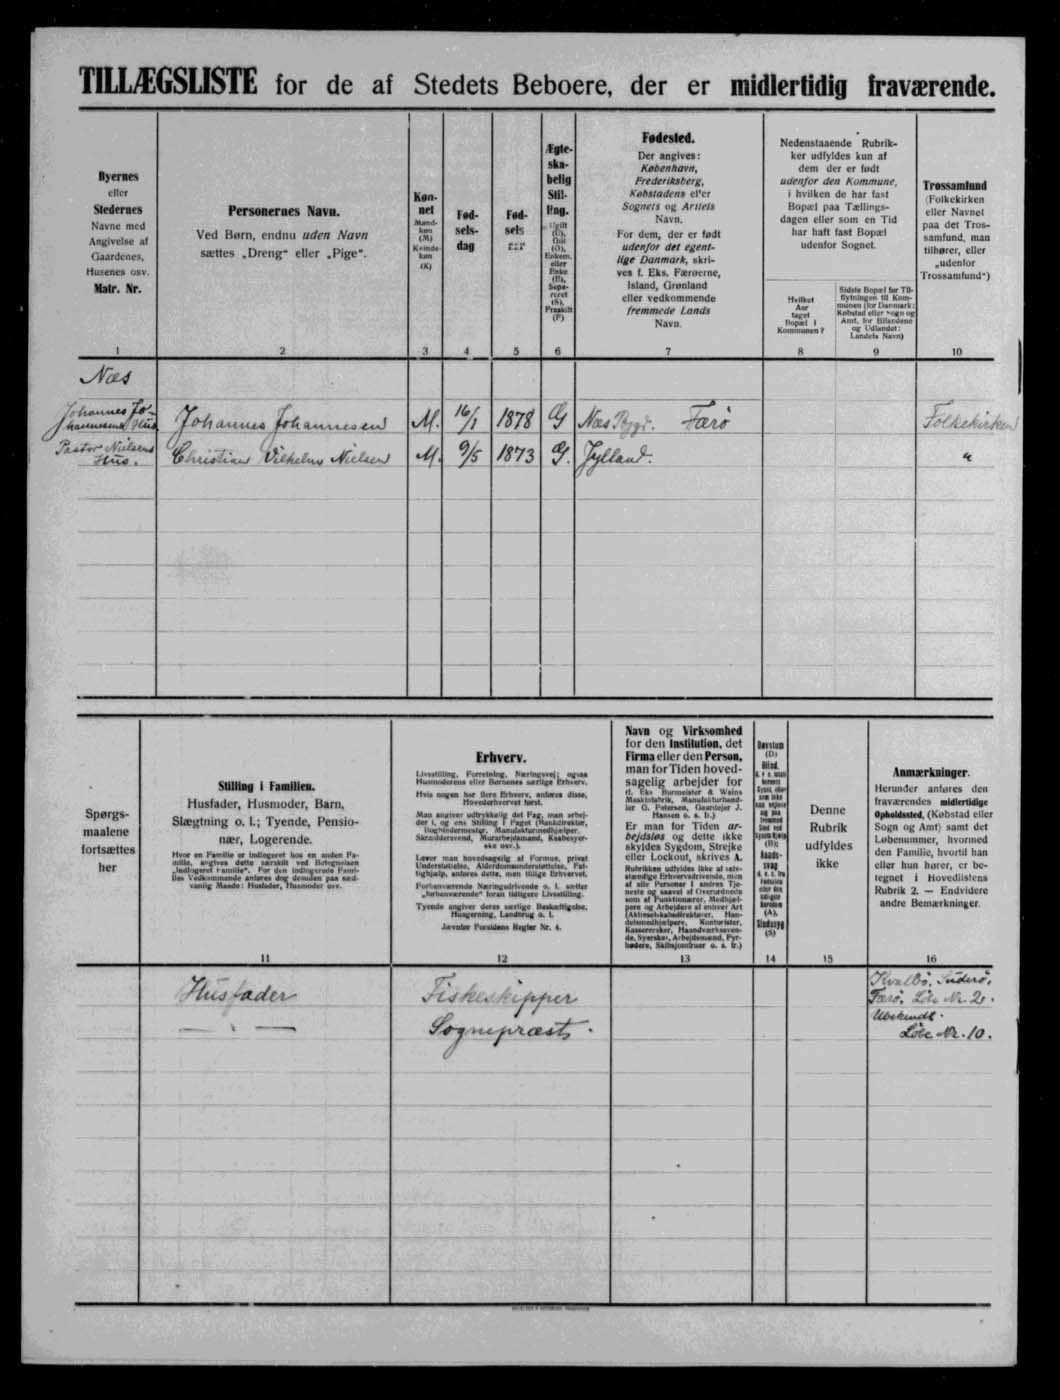 TILLÆGSLISTE for de af Stedets Beboere, der er midlertidig fraværende.
Byernes
eller
Stedernes
Navne med
Angivelse af
Gaardenes,
Husenes osv.
Matr. Nr.
1
Personernes Navn.
Ved Børn, endnu uden Navn
sættes „Dreng“ eller „Pige“.
2
Køn-
net
Mand-
køn
(M)
Kvinde-
køn
(K)
3
Fød-
sels-
dag
4
Fød-
sels
aar
5
Ægte-
ska-
belig
Stil-
ling.
Ugift
(U),
Gift
(G),
Enkem.
eller
Enke
(E),
Sepa-
reret
(S),
Fraskilt
(F)
6
Fødested.
Der angives:
København,
Frederiksberg,
Købstadens eller
Sognets og Amtets
Navn.
For dem, der er født
udenfor det egent-
lige Danmark, skri-
ves f. Eks. Færøerne,
Island, Grønland
eller vedkommende
fremmede Lands
Navn.
7
Nedenstaaende Rubrik-
ker udfyldes kun af
dem der er født
udenfor den Kommune,
i hvilken de har fast
Bopæl paa Tællings-
dagen eller som en Tid
har haft fast Bopæl
udenfor Sognet.
Hvilket
Aar
taget
Bopæl i
Kommunen?
8
Sidste Bopæl før Til-
flytningen til Kom-
munen (for Danmark:
Købstad eller Sogn og
Amt, for Bilandene
og Udlandet:
Landets Navn)
9
Trossamfund
(Folkekirken
eller Navnet
paa det Tros-
samfund, man
tilhører, eller
„udenfor
Trossamfund“)
10
Næs
Johannes Jo-
hannesens Hus
Johannes Johannesen M. 16/1 1878 G Næs Bygd. Færø Folkekirken
Pastor Nielsens
Hus.
Christian Vilhelm Nielsen M. 9/5 1873 G. Jylland. "
Spørgs-
maalene
fortsættes
her
Stilling i Familien.
Husfader, Husmoder, Barn,
Slægtning o. l.; Tyende, Pensio-
nær, Logerende.
Hvor en Familie er indlogeret hos en anden Fa-
milie, angives dette særskilt ved Betegnelsen
„Indlogeret Familie“. For den indlogerede Fami-
lies Vedkommende anføres dog desuden paa sæd-
vanlig Maade: Husfader, Husmoder osv.
11
Erhverv.
Livsstilling, Forretning, Næringsvej; ogsaa
Husmoderens eller Børnenes særlige Erhverv.
Hvis nogen har flere Erhverv, anføres disse,
Hovederhvervet først.
Man angiver udtrykkelig det Fag, man arbej-
der i, og ens Stilling i Faget (Bankdirektør,
Bogbindermester, Manufakturmedhjælper,
Skræddersvend, Murarbejdsmand, Kasbesyer-
ske osv.).
Lever man hovedsagelig af Formue, privat
Understøttelse, Alderdomsunderstøttelse, Fat-
tighjælp, anføres dette, men tillige Erhvervet.
Forhenværende Næringsdrivende o. l. sætter
„forhenværende“ foran tidligere Livsstilling.
Tyende angiver deres særlige Beskæftigelse,
Husgerning, Landbrug o. l.
Jævnfør Forsidens Regler Nr. 4.
12
Navn og Virksomhed
for den Institution, det
Firma eller den Person,
man for Tiden hoved-
sagelig arbejder for
(f. Eks Burmeister & Wains
Maskinfabrik, Manufakturhand-
ler G. Petersen, Gaardejer J.
Hansen o. s. fr.)
Er man for Tiden ar-
bejdsløs og dette ikke
skyldes Sygdom, Strejke
eller Lockout, skrives A.
Rubrikken udfyldes ikke af selv-
stændige Erhvervsdrivende, men
af alle Personer i andres Tje-
neste og saavel af Overordnede
som af Funktionærer, Medhjæl-
pere og Arbejdere af enhver Art
(Aktieselskabsdirektører, Han-
delsmedhjælpere, Kontorister,
Kasserersker, Haandværkssven-
de, Syersker, Arbejdsmænd, Fyr-
bødere, Skibsjomfruer o. s. fr.)
13
Døvstum
(D)
Blind,
(B);
Aands-
svag
(A),
Sindssyg
(S)
14
Denne
Rubrik
udfyldes
ikke
15
Anmærkninger.
Herunder anføres den
fraværendes midlertidige
Opholdssted, (Købstad eller
Sogn og Amt) samt det
Løbenummer, hvormed
den Familie, hvortil han
eller hun hører, er be-
tegnet i Hovedlistens
Rubrik 2. — Endvidere
andre Bemærkninger.
16
Husfader Fiskeskipper Kvalbø, Suderø,
Færø. Løbe Nr. 2.
— " — Sognepræst. Ubekendt.
Løbe Nr. 10.